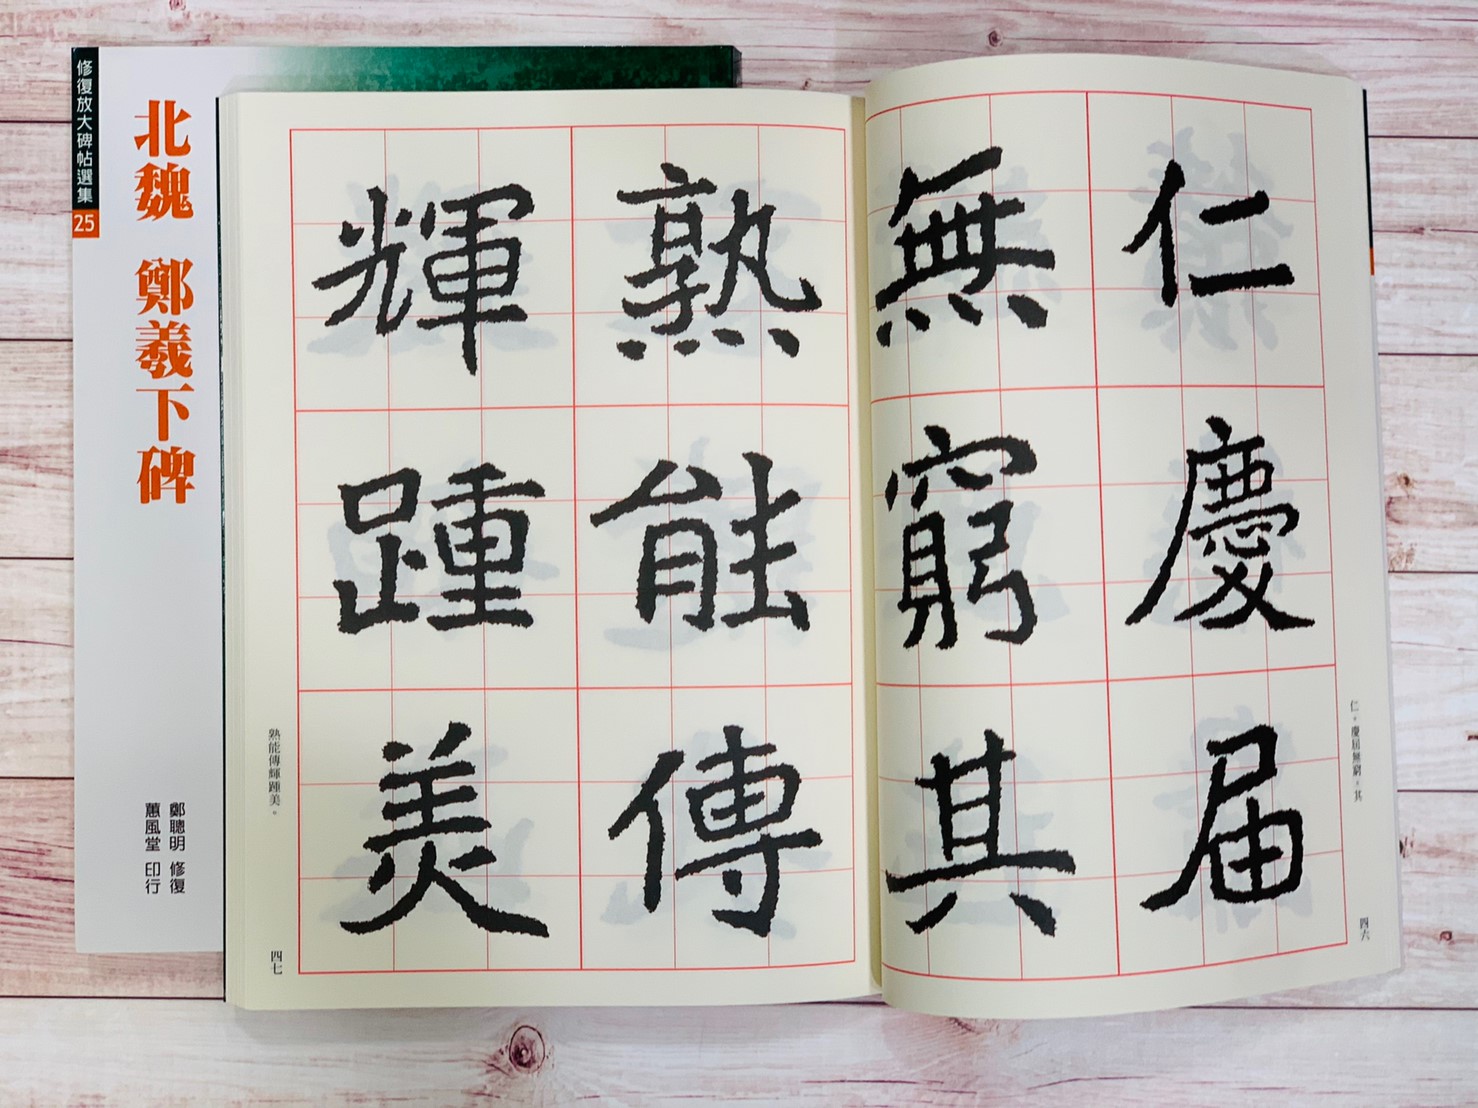 修復放大碑帖選集
25
北魏 鄭羲下碑
鄭聰明 修復
蕙風堂 印行
仁慶屆
無窮其
仁。慶屆無窮。其
四六
熟能傳
輝踵美
熟能傳輝踵美。
四七